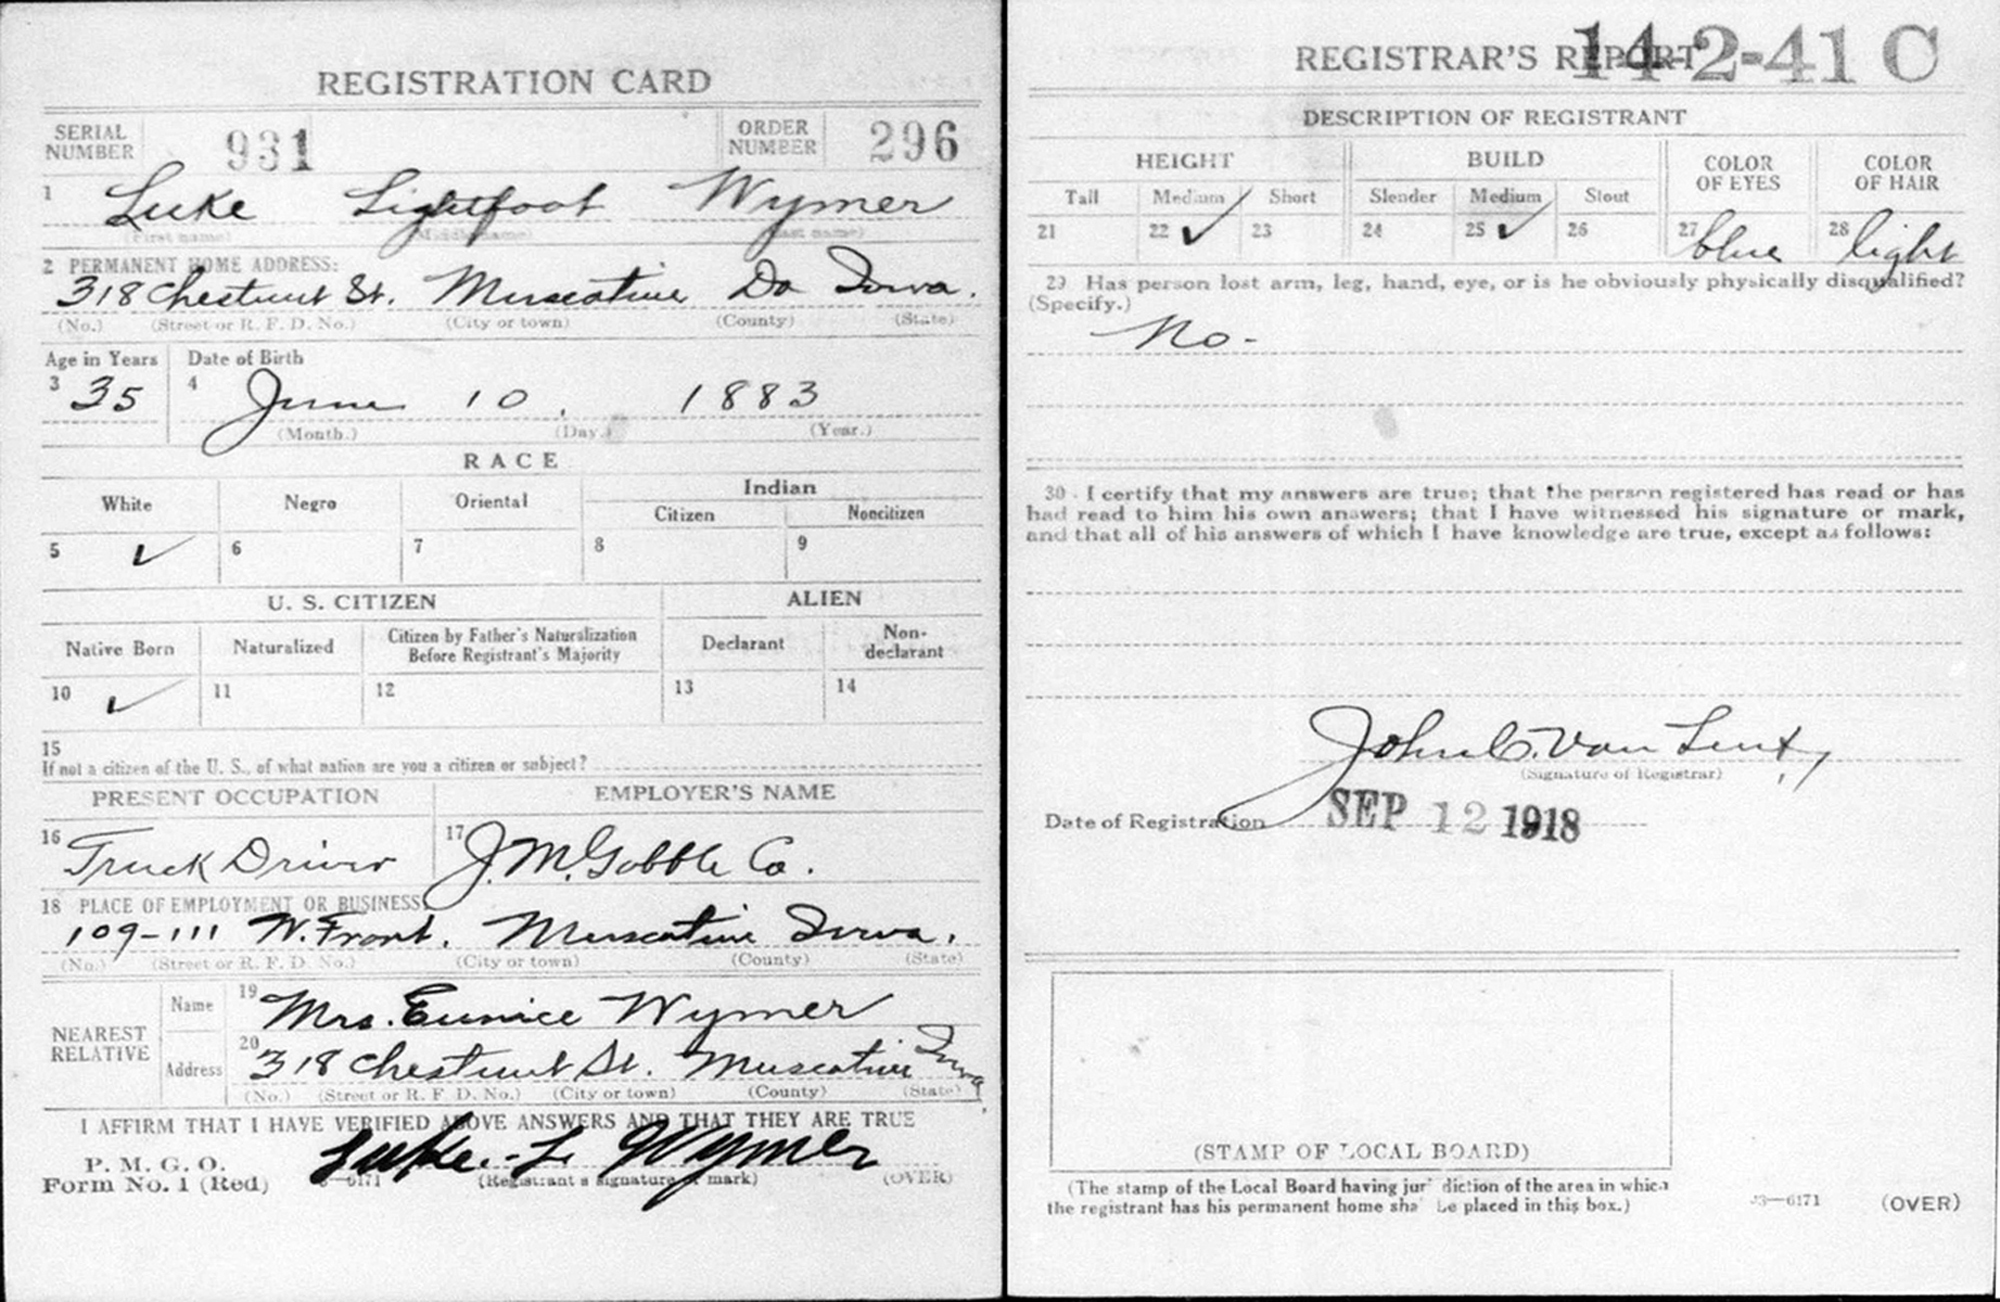 REGISTRATION CARD
SERIAL NUMBER 931 ORDER NUMBER 296
1 Luke Lightfoot Wymer
(First name) (Middle name) (Last name)
2 PERMANENT HOME ADDRESS:
318 Chestnut St. Muscatine Do Iowa.
(No.) (Street or R. F. D. No.) (City or town) (County) (State)
Age in Years Date of Birth
3 35 4 June 10, 1883
(Month.) (Day.) (Year.)
RACE
White Negro Oriental Indian
Citizen Noncitizen
5 ✓ 6 7 8 9
U. S. CITIZEN ALIEN
Native Born Naturalized Citizen by Father's Naturalization Before Registrant's Majority Declarant Non-declarant
10 ✓ 11 12 13 14
15
If not a citizen of the U. S., of what nation are you a citizen or subject?
PRESENT OCCUPATION EMPLOYER'S NAME
16 Truck Driver 17 J. M. Gobble Co.
18 PLACE OF EMPLOYMENT OR BUSINESS:
109-111 W. Front. Muscatine Iowa.
(No.) (Street or R. F. D. No.) (City or town) (County) (State)
NEAREST RELATIVE
Name 19 Mrs. Eunice Wymer
Address 20 318 Chestnut St. Muscatine Iowa
(No.) (Street or R. F. D. No.) (City or town) (County) (State)
I AFFIRM THAT I HAVE VERIFIED ABOVE ANSWERS AND THAT THEY ARE TRUE
P. M. G. O.
Form No. 1 (Red) Luke L Wymer
(Registrant's signature or mark) (OVER)
REGISTRAR'S REPORT 14-2-41 C
DESCRIPTION OF REGISTRANT
HEIGHT BUILD COLOR OF EYES COLOR OF HAIR
Tall Medium Short Slender Medium Stout
21 22 ✓ 23 24 25 ✓ 26 27 blue 28 light
29 Has person lost arm, leg, hand, eye, or is he obviously physically disqualified?
(Specify.)
No-
30 I certify that my answers are true; that the person registered has read or has
had read to him his own answers; that I have witnessed his signature or mark,
and that all of his answers of which I have knowledge are true, except as follows:
John C. Van Lent,
(Signature of Registrar)
Date of Registration SEP 12 1918
(STAMP OF LOCAL BOARD)
(The stamp of the Local Board having jurisdiction of the area in which
the registrant has his permanent home shall be placed in this box.)
03—6171 (OVER)